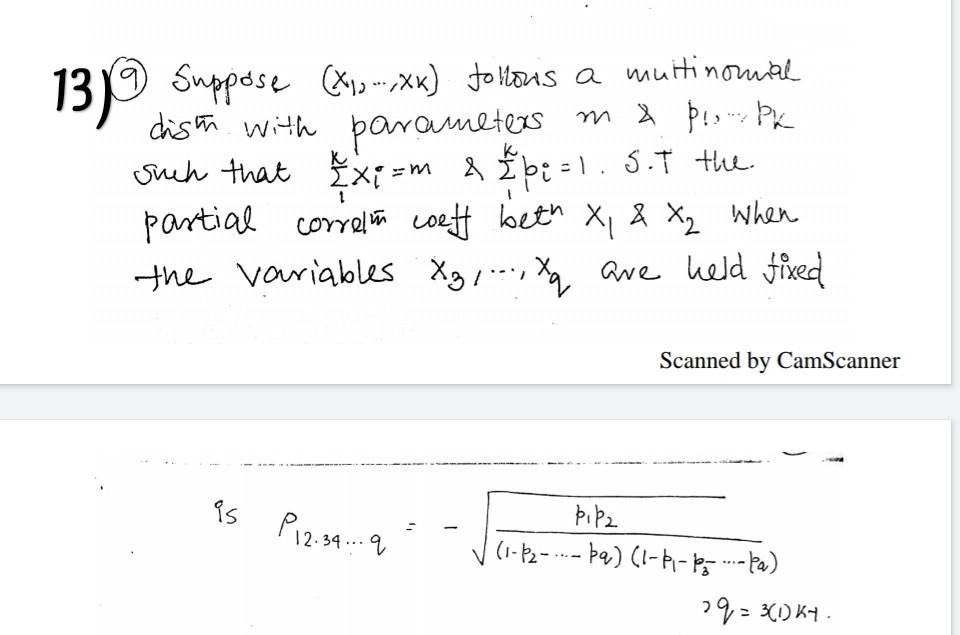 13) 9 Suppose (X1, ..., XK) follows a multinomial
distn with parameters m & p1, ... PK
such that K Σ 1 Xi = m & K Σ 1 pi = 1. S.T the
partial correln coeff betn X1 & X2 when
the variables X3, ..., Xq are held fixed
Scanned by CamScanner
is ρ12.34...q = - √ p1p2 / (1-p2-....-pq) (1-p1-p3-....-pq)
, q = 3(1)K-1.